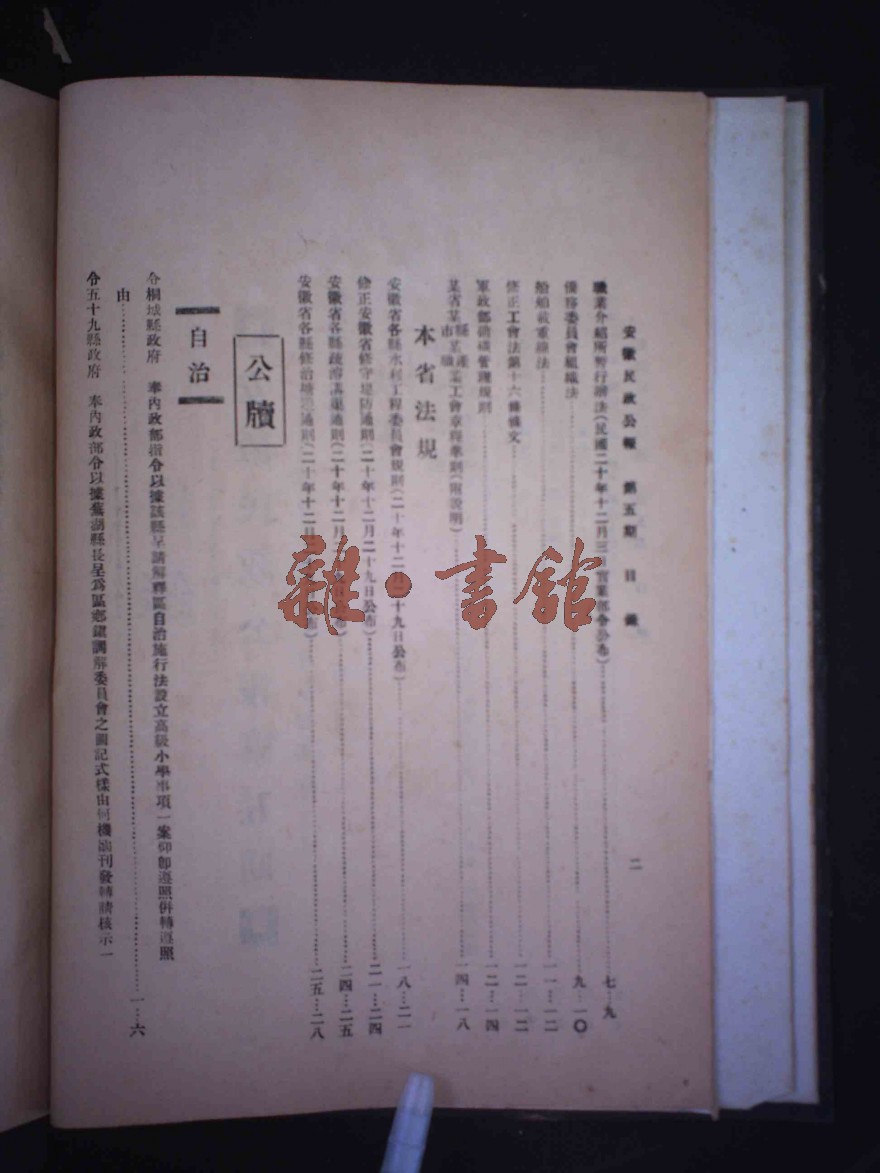 安徽民政公報　第五期　目錄
二
職業介紹所暫行辦法(民國二十年十二月三日實業部令公布)……七…九
僑務委員會組織法……九…一〇
船舶載重線法……一一…一二
修正工會法第十六條條文……一二…一二
軍政部硝磺管理規則……一二…一四
某省某縣市某產職業工會章程準則(附說明)……一四…一八
本省法規
安徽省各縣水利工程委員會規則(二十年十二月二十九日公布)……一八…二一
修正安徽省修守堤防通則(二十年十二月二十九日公布)……二一…二四
安徽省各縣疏濬溝渠通則(二十年十二月 公布)……二四…二五
安徽省各縣修治塘 通則(二十年十二月 公布)……二五…二八
公牘
自治
令桐城縣政府　奉內政部指令以據該縣呈請解釋區自治施行法設立高級小學事項一案仰卽遵照併轉遵照
由……一…六
令五十九縣政府　奉內政部令以據蕪湖縣長呈爲區鄉鎮調解委員會之圖記式樣由何機關刊發轉請核示一
雜·書館